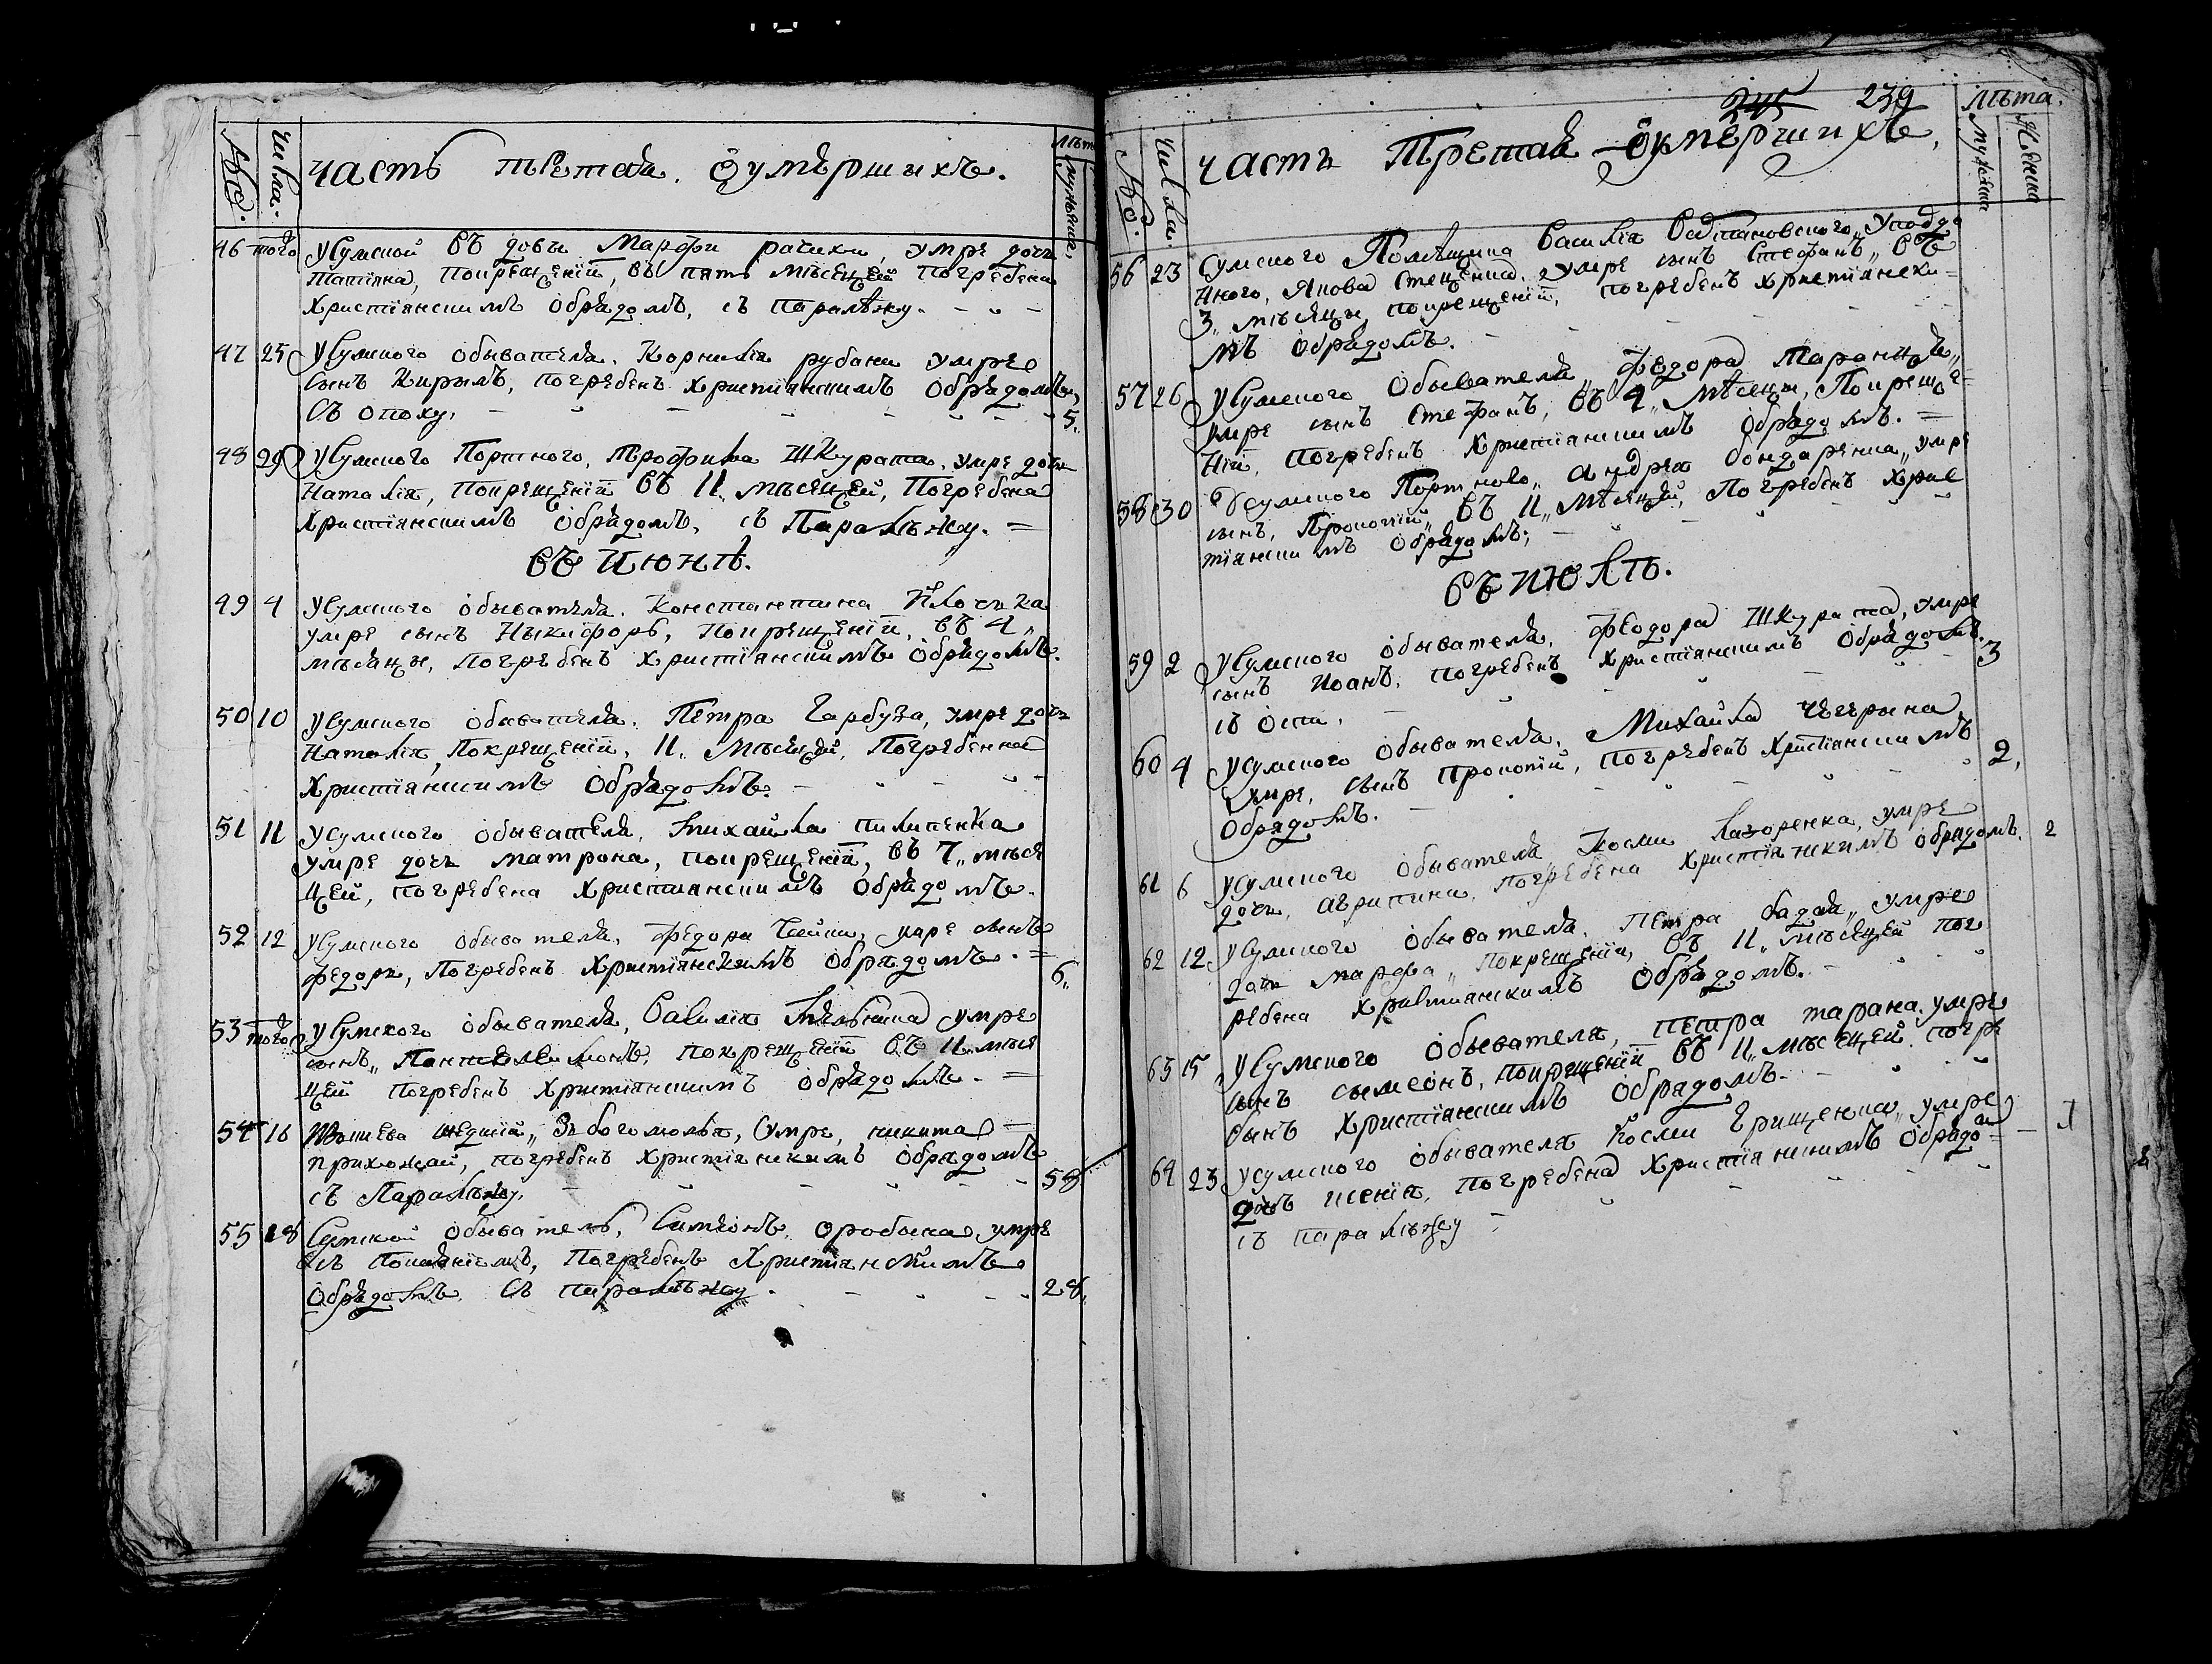 №. Числа. Часть третая. О умершихъ. Лѣт
мужеска
46 того Усумской вдовы Марфи рачихи, умре дочь
Татіяна, покрещеніи, въ пять мѣсецей погребена
Христіанскимъ обрядомъ, съ паралѣжу.
47 25 Усумского обывателя Корнилія рубани умре
сынъ Кирылъ, погребенъ христіянскимъ обрядомъ,
съ опоху, 5,
48 29 Усумского Портного, Трофима Шкурата, умре дочь
Наталія, покрещеніи въ 11 мѣсецей, Погребена
Христіянскимъ обрядомъ, съ Паралѣжу.
въ Июнѣ.
49 4 Усумского обывателя Константина
умре сынъ Ныкифоръ, покрещеніи, въ 4
мѣсяцы, погребенъ христіянскимъ обрядомъ.
50 10 Усумского обывателя Петра Гарбуза, умре дочь
Наталія, покрещеніи, 11 мѣсецей, Погребенна
Христіянскимъ обрядомъ.
51 11 Усумского обывателя, михайла пилипенка
умре дочь матрона, покрещеніи, въ 7 мѣся
цей, погребена христианскимъ обрядомъ.
52 12 Усумского обывателя, федора умре сынъ
федоръ, погребенъ христіянскимъ обрядомъ. 6,
53 того Усумского обывателя, Василія Мельника умре
сынъ, Пантелеимонъ, покрещеніи въ 11 мѣся
цей погребенъ христіянскимъ обрядомъ.
54 16 шедшій, з богомолья, умре, никита
прихожай, погребенъ христіянскимъ обрядомъ
съ Паралѣжу, 58
55 18 Сумской обыватель, Симеонъ оробыка умре
съ покаяніемъ, погребенъ Христіянскимъ
обрядомъ съ паралѣжу. 28,
245 239
№. Числа. Часть Третая О умершихъ, Лѣта.
мужеска Женска
56 23 Сумского Помѣщика Василія Усподда
ного, Якова Стеценка, умре сынъ Стефанъ, въ
3 мѣсяцы, покрещеніи, погребенъ христіянски
мъ обрядомъ.
57 26 Усумского обывателя, Федора
умре сынъ Стефанъ, въ 4 мѣсецы, Покреще
ніи, погребенъ Христіянскимъ обрядомъ.
58 30 Усумского Портного, Андрея бондаренка, умре
сынъ, Прокопій, въ 11 мѣсяцей, погребенъ Хрис
тіянскимъ обрядомъ,
въ июлѣ.
59 2 Усумского обывателя, Феодора Шкурата, умре
сынъ Иоанъ, погребенъ христіянскимъ обрядомъ.
съ оспи, 3
60 4 Усумского обывателя, Михайла Чегрына
умре, сынъ прокопій, погребенъ христіянскимъ
обрядомъ. 2,
61 6 Усумского обывателя Косми Лазоренка, умре
дочь, агрипина, погребена христіянскимъ обрядомъ. 2
62 12 Усумского обывателя Петра бадая, умре
дочь марфа, покрещеніи, въ 11 мѣсецей пог
ребена христианскимъ обрядомъ.
63 15 Усумского обывателя, петра тарана, умре
сынъ сымеонъ, покрещеніи въ 11 мѣсецей, погре
бынъ христіянскимъ обрядомъ.
64 23 Усумского обывателя Косми Грищенка, умре
дочь ксенія, погребена христіянскимъ обрядом 1
съ паралѣжу